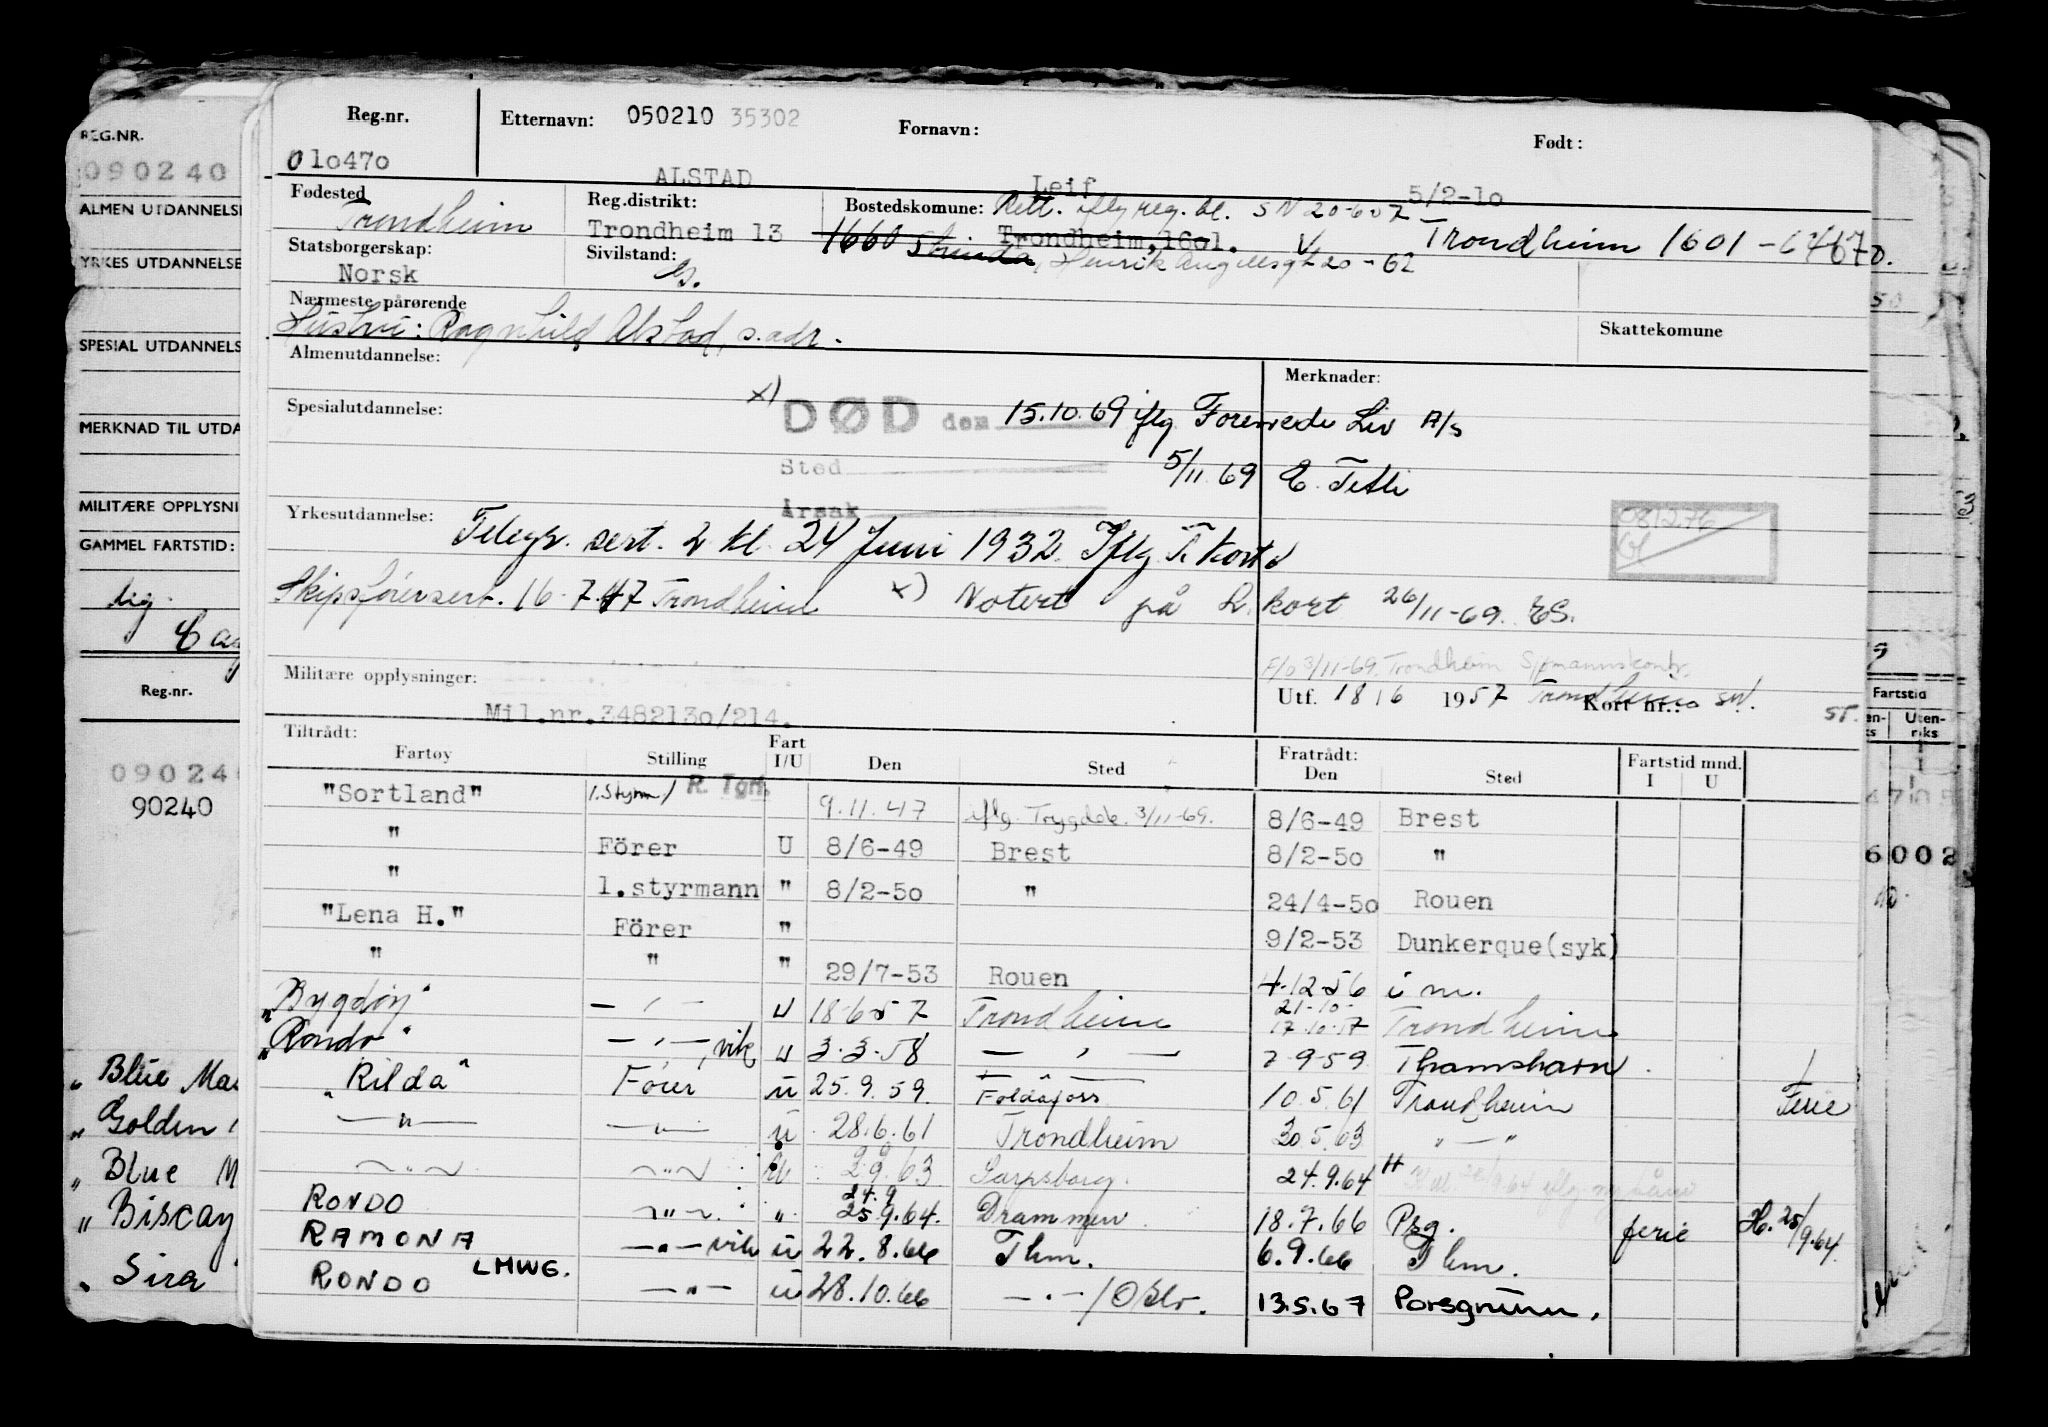 REG.NR.
090240
ALMEN UTDANNELSE
YRKES UTDANNELSE
SPESIAL UTDANNELS
MERKNAD TIL UTDA
MILITÆRE OPPLYSNI
GAMMEL FARTSTID:
Reg.nr.
090240
90240
"Blue Ma
"Golden
"Blue M
"Biscay
"Sira
Reg.nr. Etternavn: 050210 35302 Fornavn: Født:
010470 ALSTAD Leif 5/2-10
Fødested Reg.distrikt: Bostedskomune: Rett. iflg reg. bl. SN 20-6-57
Trondheim Trondheim 13 1660 Strinda Trondheim, 1601. Trondheim 1601
Statsborgerskap: Sivilstand: Henrik
Norsk G.
Nærmeste pårørende Skattekomune
Hustru: Ragnhild Alstad, s.adr.
Almenutdannelse: Merknader:
Spesialutdannelse: x) DØD den 15.10.69 iflg Forenede Liv A/s
Sted 5/11 69
Årsak
Yrkesutdannelse: Telegr. sert. 2 kl. 24 Juni 1932. Iflg T. Kort
081276
Skipsførersert. 16-7-47 Trondheim x) Notert på L. kort 26/11-69. ES.
F/o 3/11-69. Trondheim Sjømannskontr.
Militære opplysninger: Utf. 18/6 1957 Trondheim Kort nr.: SN. ST.
Mil.nr.3482130/214.
Tiltrådt: Fratrådt:
Fartøy Stilling Fart I/U Den Sted Den Sted Fartstid mnd. I U
"Sortland" 1.Styrm/ R. Tgm. 9.11.47 iflg. Trygdek. 3/11-69. 8/6-49 Brest
" Förer U 8/6-49 Brest 8/2-50 "
" 1.styrmann " 8/2-50 " 24/4-50 Rouen
"Lena H." Förer " 9/2-53 Dunkerque(syk)
" " " 29/7-53 Rouen 4-12-56 i m.
"Bygdøy" — " — U 18-6-57 Trondheim 21-10- 17-10-57 Trondheim
"Rondo" — " —, vik U 3-3-58 — " — 7-9-59 Thamshavn
"Rilda" Fører U 25.9.59. Foldafoss 10.5.61 Trondheim Ferie
— " — — " — U 28.6.61 Trondheim 30.5.63 " — "
— " — — " — 2.9.63 Sarpsborg. 24.9.64
RONDO — " — " 24.9 25.9.64. Drammen 18.7.66 Psg. ferie H. 25/9.64.
RAMONA — " — vik U 22.8.66 Thm. 6.9.66 Thm.
RONDO LMWG. — " — U 28.10.66 — " — /Oslo. 13.5.67 Porsgrunn.
Fartstid
Uten-
riks
6002